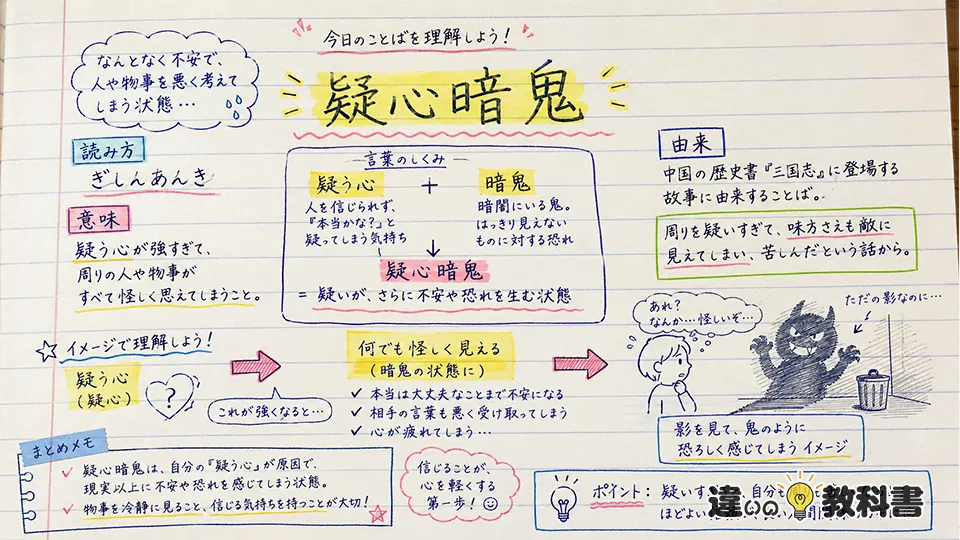 今日のことばを理解しよう！
疑心暗鬼
なんとなく不安で、
人や物事を悪く考えて
しまう状態…
読み方
ぎしんあんき
意味
疑う心が強すぎて、
周りの人や物事が
すべて怪しく思えてしまうこと。
言葉のしくみ
疑う心 + 暗鬼
人を信じられず、
『本当かな？』と
疑ってしまう気持ち
暗闇にいる鬼。
はっきり見えない
ものに対する恐れ
↓
疑心暗鬼
= 疑いが、さらに不安や恐れを生む状態
由来
中国の歴史書『三国志』に登場する
故事に由来することば。
周りを疑いすぎて、味方さえも敵に
見えてしまい、苦しんだという話から。
☆ イメージで理解しよう！
疑う心
(疑心)
?
これが強くなると…
何でも怪しく見える
(暗鬼の状態に)
✓ 本当は大丈夫なことまで不安になる
✓ 相手の言葉も悪く受け取ってしまう
✓ 心が疲れてしまう…
あれ？
なんか…怪しいぞ…
ただの影なのに…
影を見て、鬼のように
恐ろしく感じてしまう イメージ
まとめメモ
✓ 疑心暗鬼は、自分の『疑う心』が原因で、
現実以上に不安や恐れを感じてしまう状態。
✓ 物事を冷静に見ること、信じる気持ちを持つことが大切！
信じることが、
心を軽くする
第一歩！
ポイント： 疑いす 自分も
ほどよい 間
違いの教科書